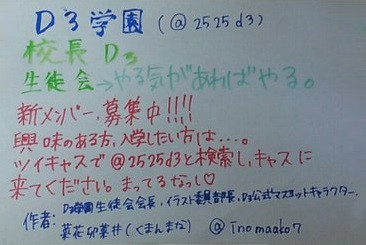 D3学園(@2525d3)
校長 D3
生徒会→やる気があればやる。
新メンバー、募集中!!!!
興味のある方、入学したい方は…。
ツイキャスで@2525d3と検索し、キャスに
来てください。まってるなっし♡
D3学園生徒会会長、イラスト委員部長、D3公式マスコットキャラクター、
作者: 菜花卯菜井(くまんまな) @inomaako7